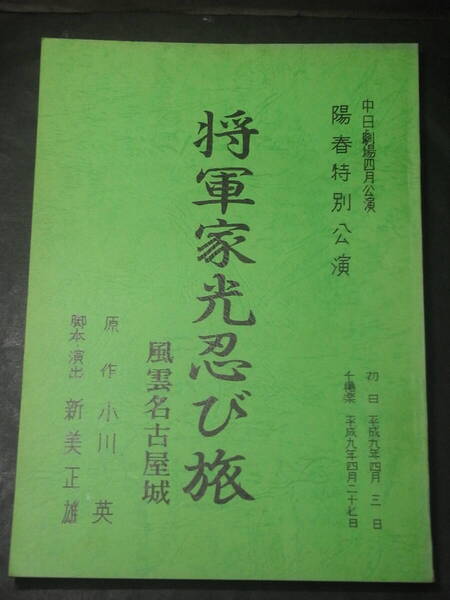 中日劇場四月公演
陽春特別公演
初日 平成九年四月三日
千穐楽 平成九年四月二十七日
将軍家光忍び旅
風雲名古屋城
原作 小川英
脚本・演出 新美正雄